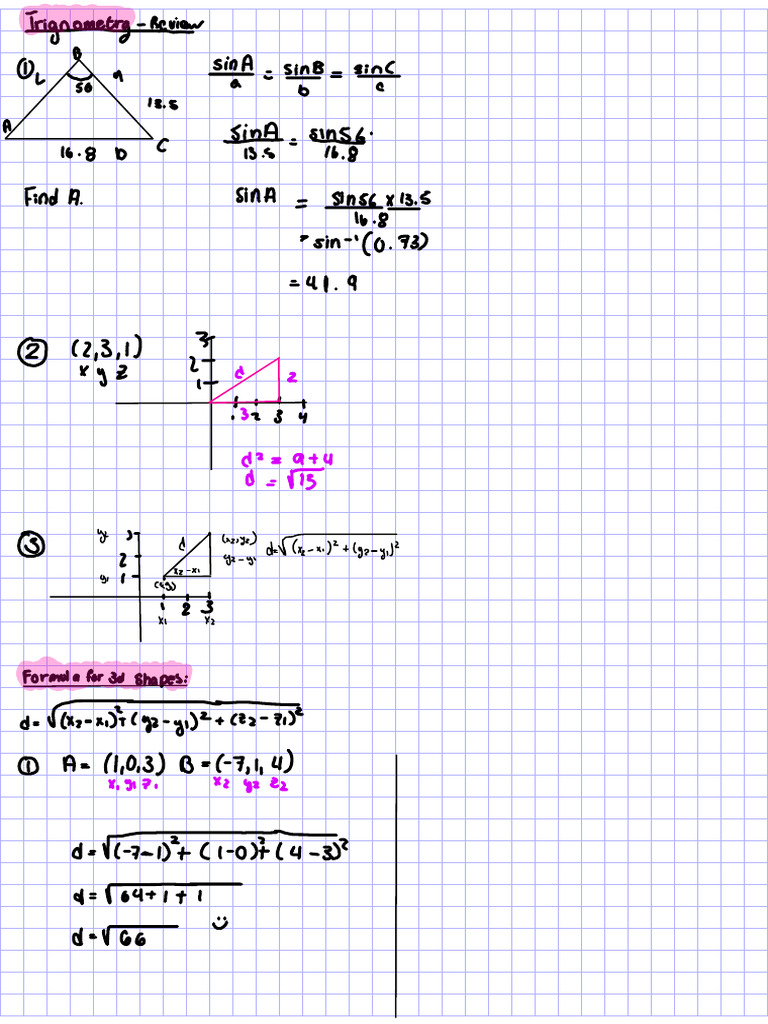 Trignometry - Review
① B
L 56 a
13.5
A C
16.8 b
sinA/a = sinB/b = sinC/c
sinA/13.5 = sin56°/16.8
Find A.
sinA = sin56 x 13.5/16.8
= sin-¹(0.73)
= 41.9
② (2,3,1)
x y z
3
2
1
d 2
1 3 2 3 4
d² = 9+4
d = √13
③ y2 3
2
y1 1
d (x2,y2)
y2-y1
x2-x1
1 2 3
x1 x2
d=√(x2-x1)²+(y2-y1)²
Formula for 3d shapes:
d=√(x2-x1)²+(y2-y1)²+(z2-z1)²
① A= (1,0,3) B=(-7,1,4)
x1 y1 z1 x2 y2 z2
d=√(-7-1)²+(1-0)²+(4-3)²
d=√64+1+1
d=√66